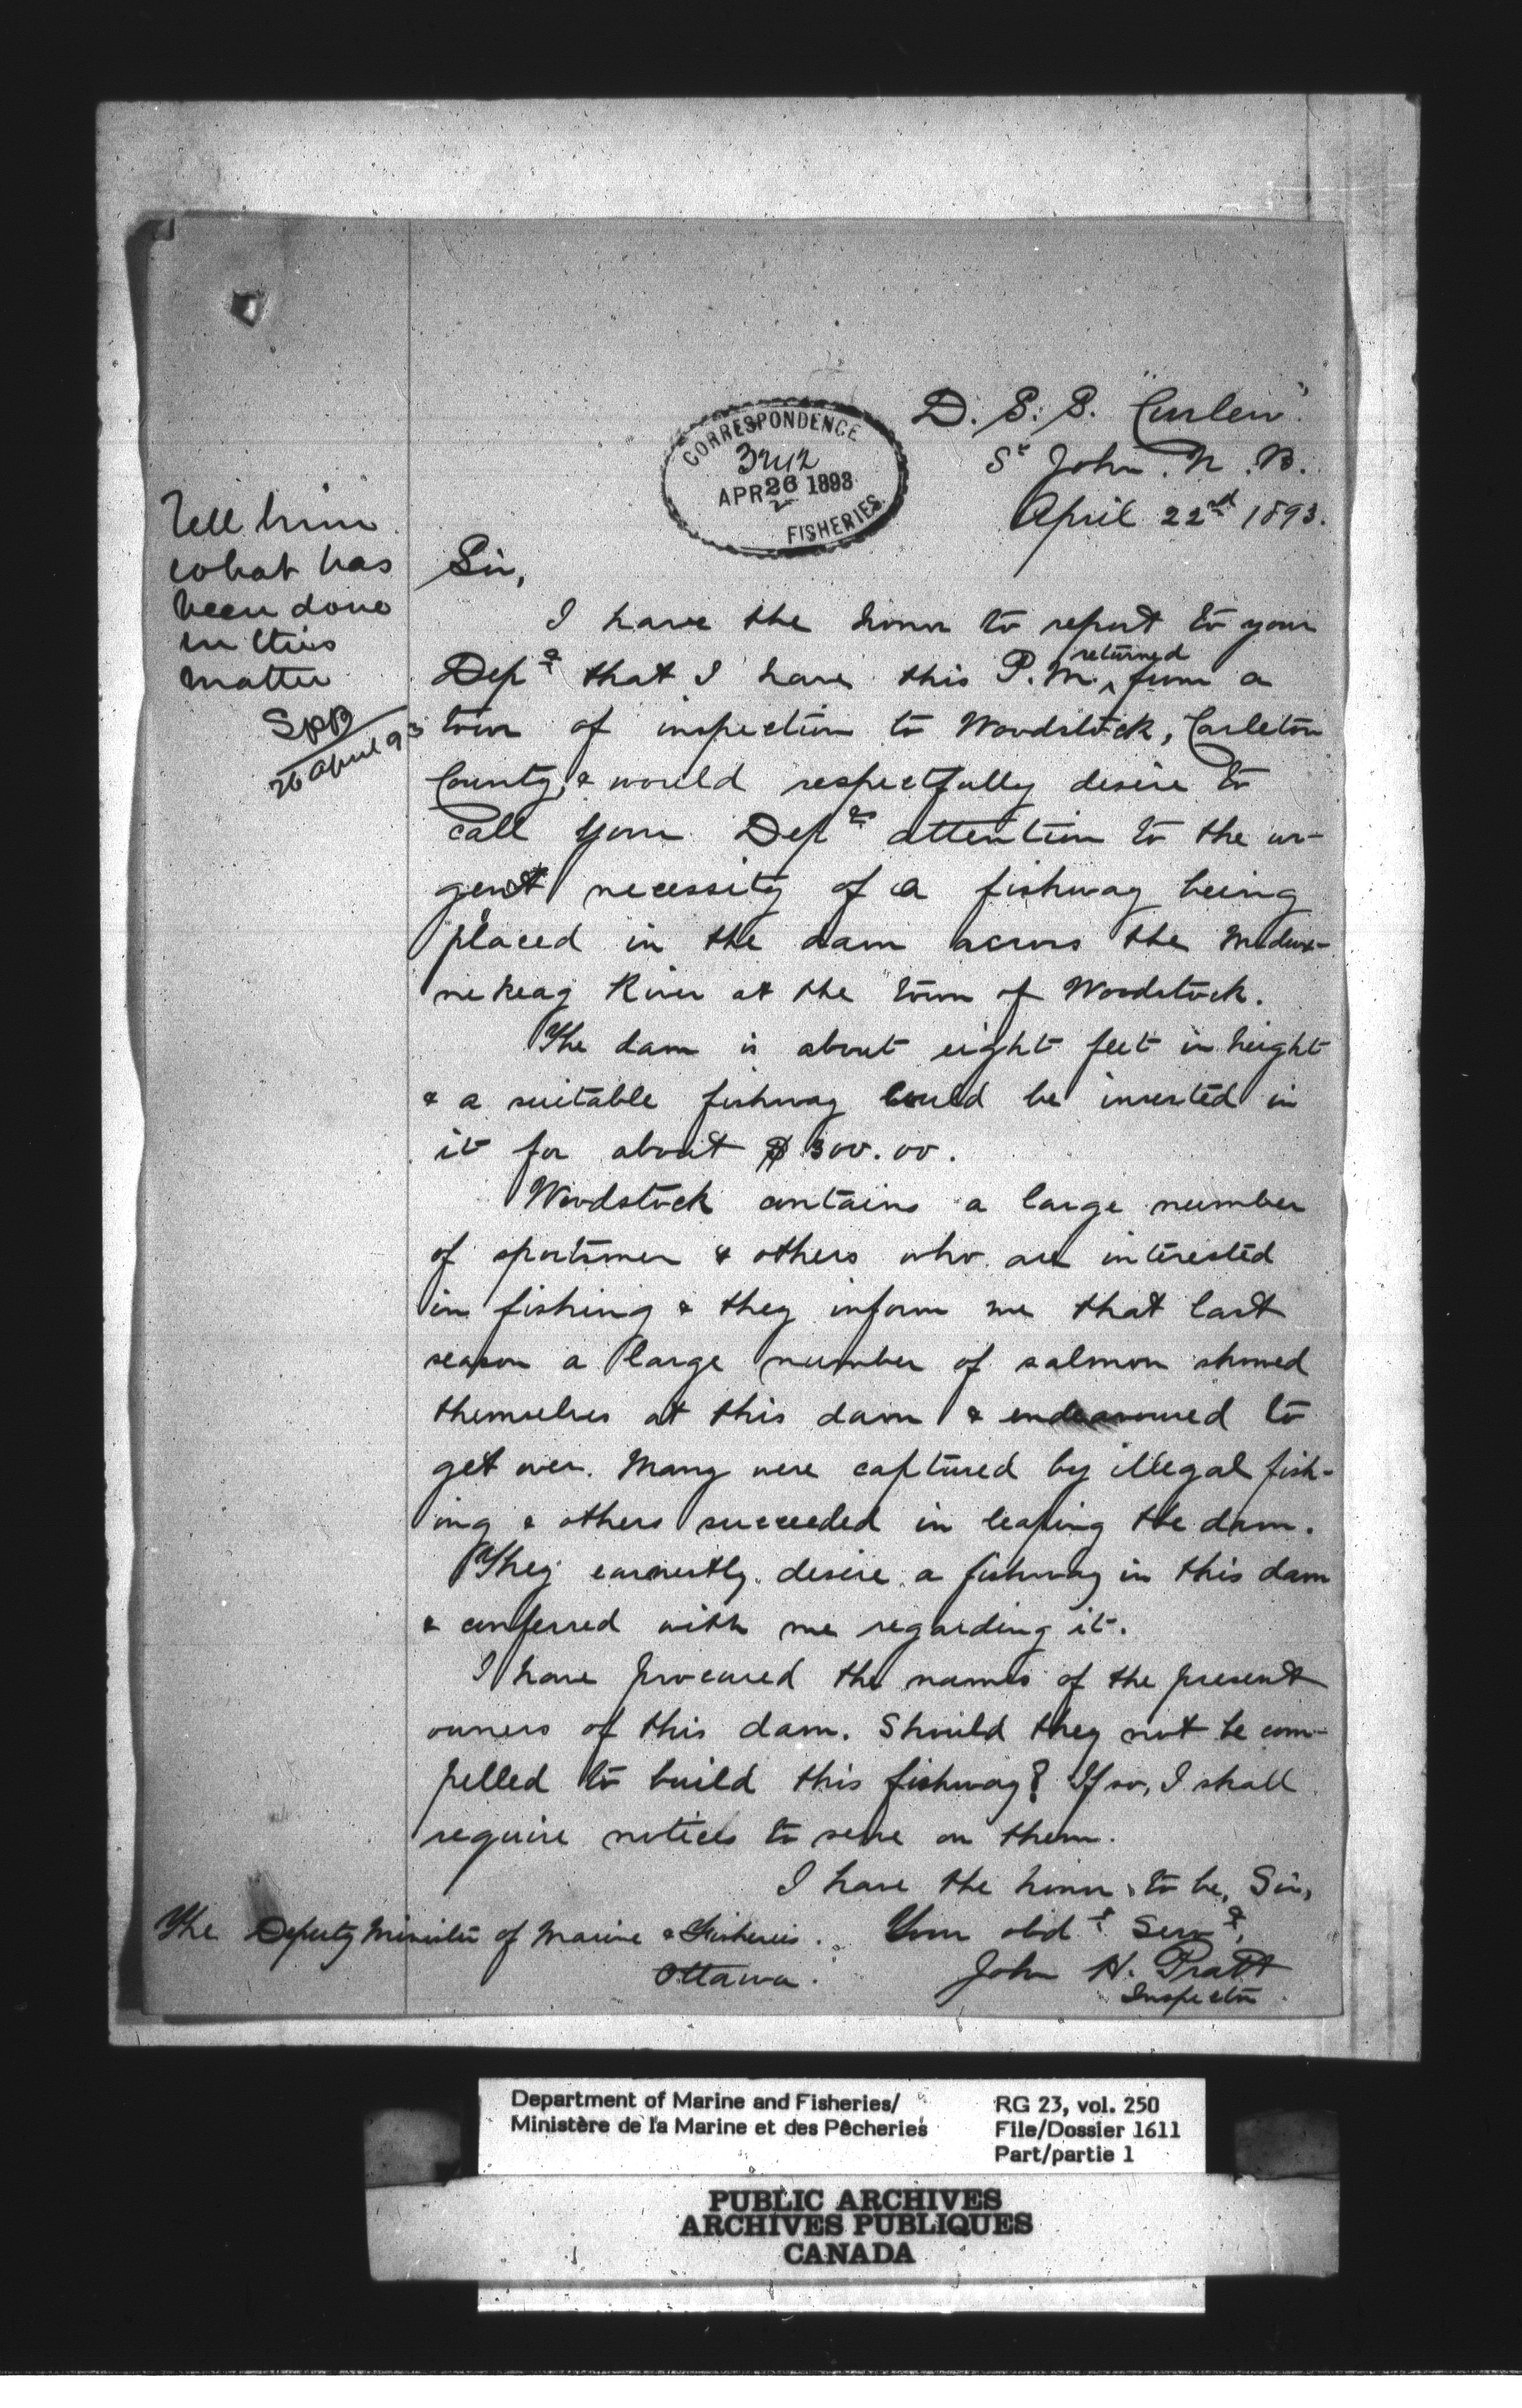 D. S. S. "Curlew".
St John. N. B.
April 22nd 1893.
CORRESPONDENCE
3242
APR 26 1893
FISHERIES
Tell him
what has
been done
in this
matter
SPB
26 April 93
Sir,
I have the honor to report to your
Dept that I have this P.M. ^ returned from a
tour of inspection to Woodstock, Carleton
County, & would respectfully desire to
call your Dept attention to the ur-
gent necessity of a fishway being
placed in the dam across the Medux-
nekeag River at the town of Woodstock.
The dam is about eight feet in height
& a suitable fishway could be inserted in
it for about $300.00.
Woodstock contains a large number
of sportsmen & others who are interested
in fishing & they inform me that last
season a large number of salmon showed
themselves at this dam & endeavoured to
get over. Many were captured by illegal fish-
ing & others succeeded in leaping the dam.
They earnestly desire a fishway in this dam
& conferred with me regarding it.
I have procured the names of the present
owners of this dam. Should they not be com-
pelled to build this fishway? If so, I shall
require notices to serve on them.
I have the honor, to be, Sir,
Your obdt Servt,
John H. Pratt
Inspector
The Deputy Minister of Marine & Fisheries.
Ottawa.
Department of Marine and Fisheries/
Ministère de la Marine et des Pêcheries
RG 23, vol. 250
File/Dossier 1611
Part/partie 1
PUBLIC ARCHIVES
ARCHIVES PUBLIQUES
CANADA